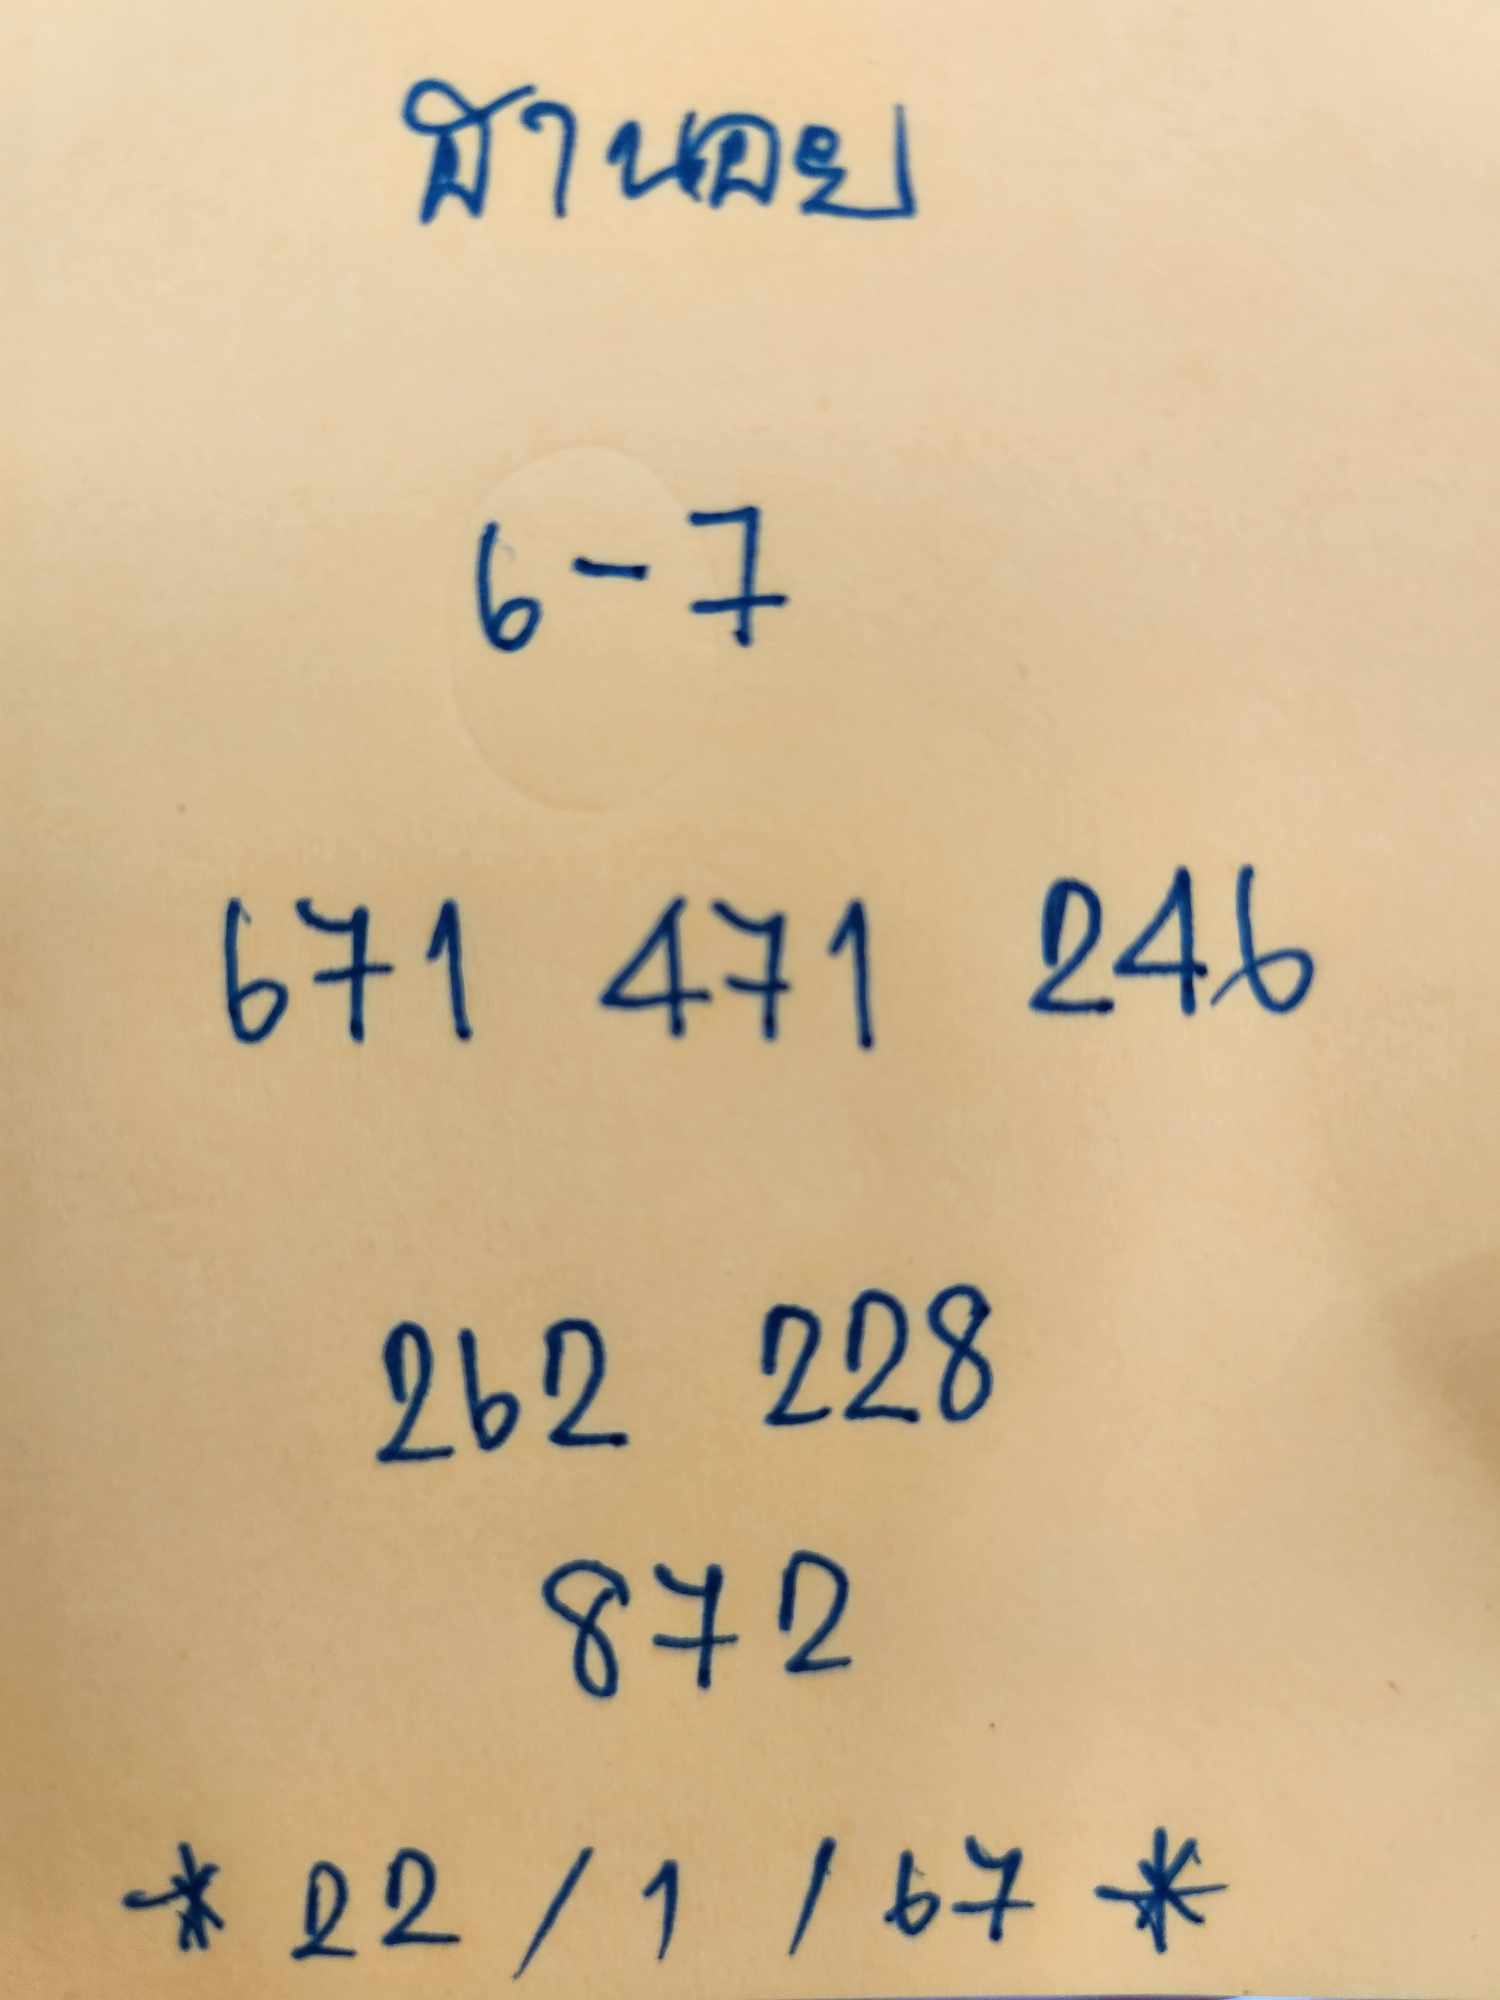 ฮานอย
6-7
671 471 246
262 228
872
* 22 / 1 / 67 *